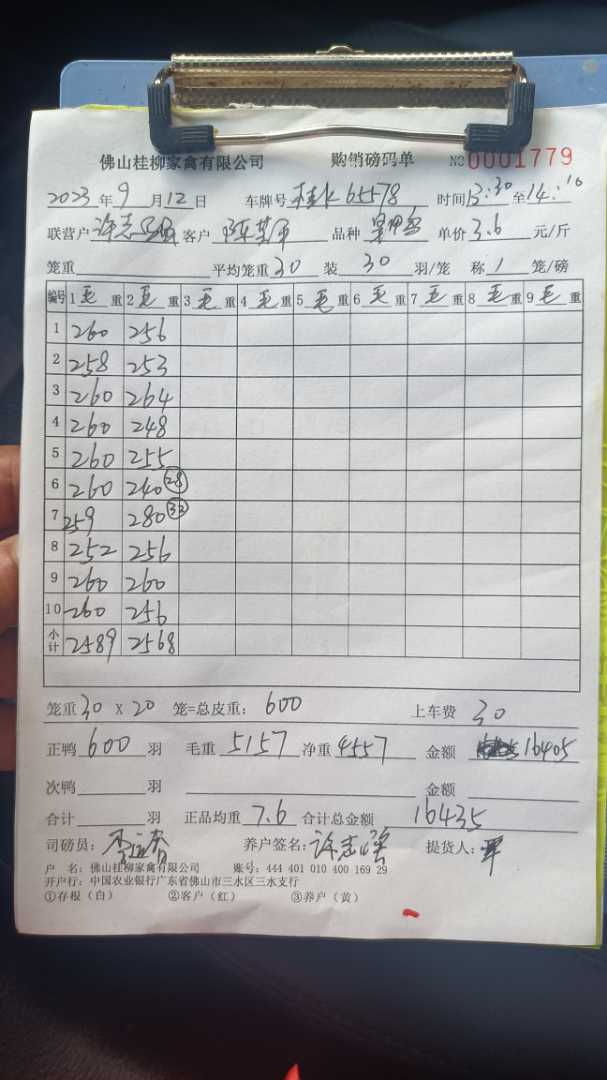 佛山桂柳家禽有限公司 购销磅码单 NO 0001779
2023年9月12日 车牌号桂K65578 时间13:30至14:10
联营户许志强 客户 品种 单价3.6元/斤
笼重 平均笼重30 装30羽/笼 称1笼/磅
编号 1毛重 2毛重 3毛重 4毛重 5毛重 6毛重 7毛重 8毛重 9毛重
1 260 256
2 258 253
3 260 264
4 260 248
5 260 255
6 260 240 28
7 259 280 32
8 252 256
9 260 260
10 260 256
小计 2589 2568
笼重30X20笼=总皮重:600 上车费30
正鸭600羽 毛重5157净重4557 金额16405
次鸭羽 金额
合计羽 正品均重7.6合计总金额16435
司磅员: 养户签名:许志强 提货人:军
户 名:佛山桂柳家禽有限公司 账号:444 401 010 400 169 29
开户行:中国农业银行广东省佛山市三水区三水支行
①存根(白) ②客户(红) ③养户(黄)